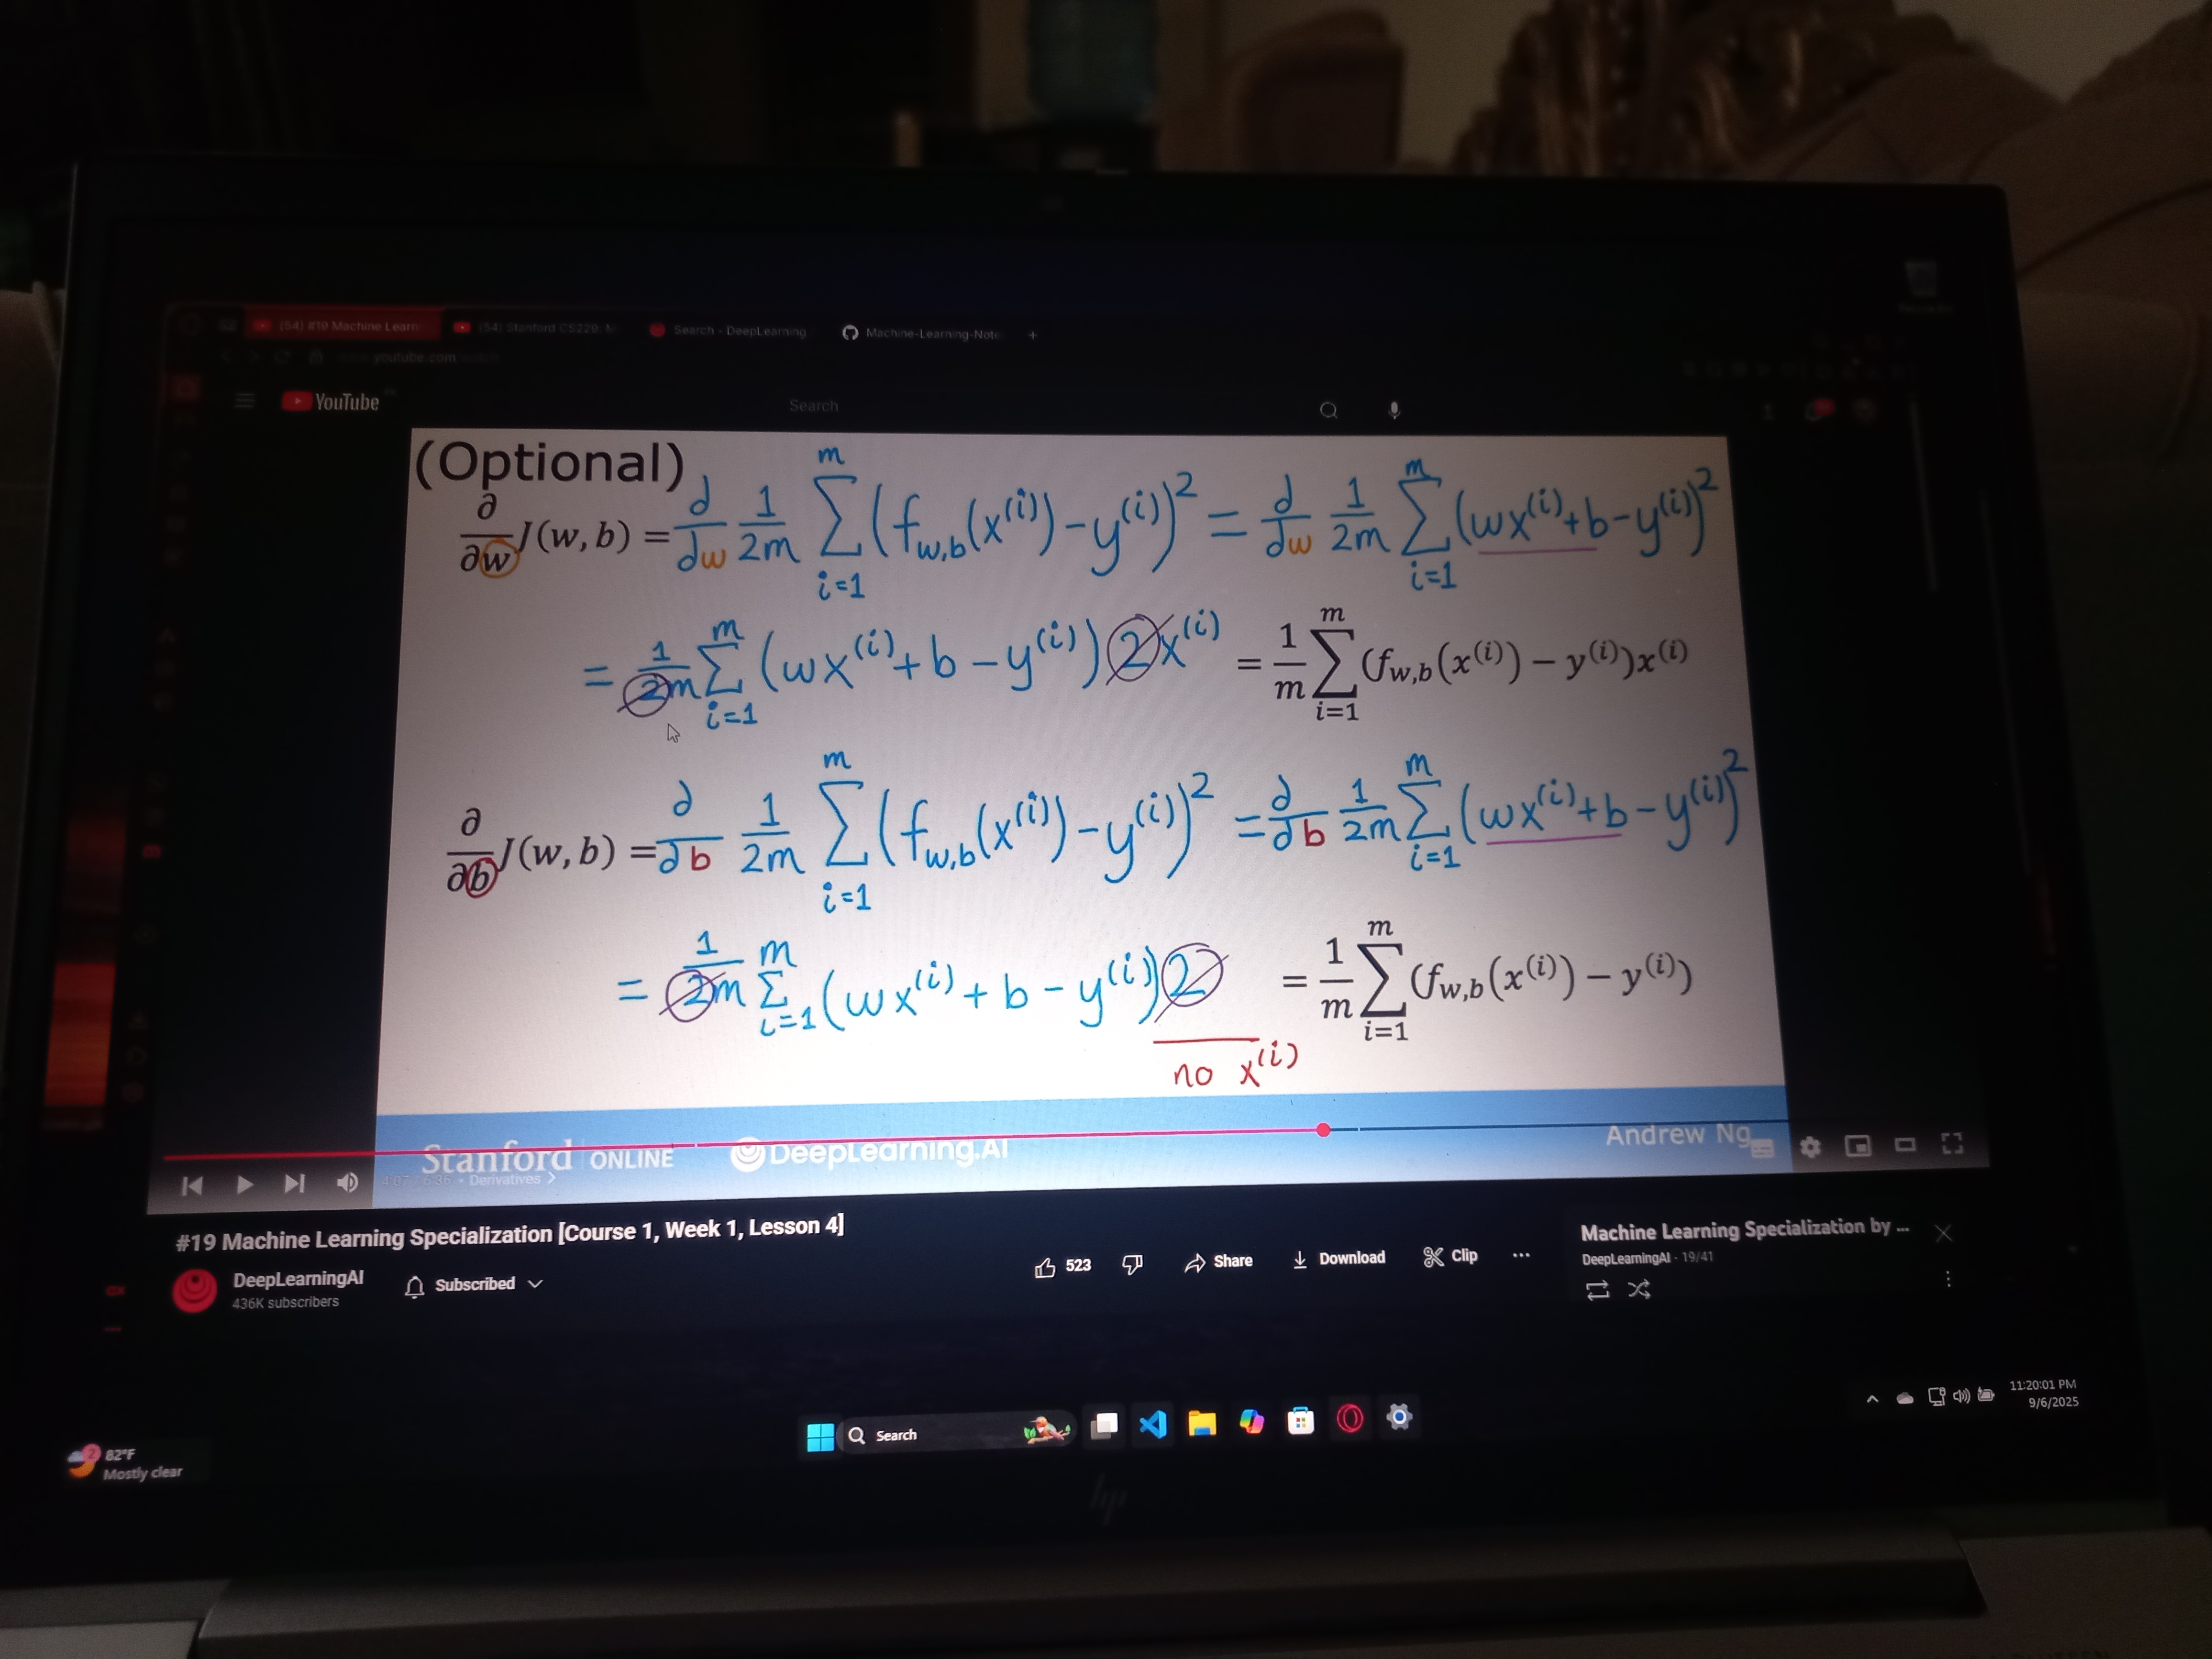 (54) #19 Machine Learn (54) Stanford CS229: M Search - DeepLearning Machine-Learning-Note +
youtube.com
YouTube Search
(Optional)
∂/∂w J(w, b) = ∂/∂w 1/2m ∑_{i=1}^{m} (f_{w,b}(x^{(i)}) - y^{(i)})^2 = ∂/∂w 1/2m ∑_{i=1}^{m} (wx^{(i)} + b - y^{(i)})^2
= 1/2m ∑_{i=1}^{m} (wx^{(i)} + b - y^{(i)}) 2x^{(i)} = 1/m ∑_{i=1}^{m} (f_{w,b}(x^{(i)}) - y^{(i)})x^{(i)}
∂/∂b J(w, b) = ∂/∂b 1/2m ∑_{i=1}^{m} (f_{w,b}(x^{(i)}) - y^{(i)})^2 = ∂/∂b 1/2m ∑_{i=1}^{m} (wx^{(i)} + b - y^{(i)})^2
= 1/2m ∑_{i=1}^{m} (wx^{(i)} + b - y^{(i)}) 2 = 1/m ∑_{i=1}^{m} (f_{w,b}(x^{(i)}) - y^{(i)})
no x^{(i)}
Stanford ONLINE DeepLearning.AI Andrew Ng
4:07 / 6:36 • Derivatives >
#19 Machine Learning Specialization [Course 1, Week 1, Lesson 4]
DeepLearningAI
436K subscribers
Subscribed
523 Share Download Clip ...
Machine Learning Specialization by ...
DeepLearningAI - 19/41
82°F
Mostly clear
2
Search
11:20:01 PM
9/6/2025
hp